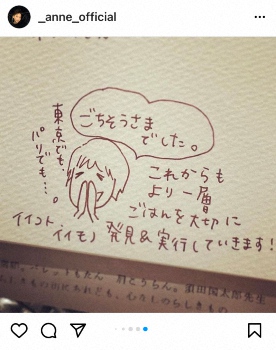 _anne_official
ごちそうさま
でした。
東京でも、
パリでも…。
これからも
より一層
ごはんを大切に
イイコト
イイモノ 発見&実行していきます!